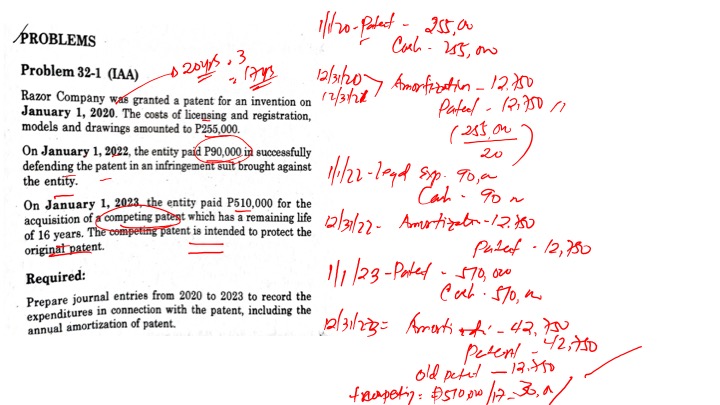 PROBLEMS
Problem 32-1 (IAA)
20yrs - 3
= 17yrs
Razor Company was granted a patent for an invention on
January 1, 2020. The costs of licensing and registration,
models and drawings amounted to P255,000.
On January 1, 2022, the entity paid P90,000 in successfully
defending the patent in an infringement suit brought against
the entity.
On January 1, 2023, the entity paid P510,000 for the
acquisition of a competing patent which has a remaining life
of 16 years. The competing patent is intended to protect the
original patent.
Required:
Prepare journal entries from 2020 to 2023 to record the
expenditures in connection with the patent, including the
annual amortization of patent.
1/1/20 - Patent - 255,00
Cash - 255,000
12/31/20 > Amortization - 12,750
12/31/21
Patent - 12,750 //
(255,00
20)
1/1/22 - legal Exp. 90,0
Cash - 90
12/31/22 - Amortization - 12,750
Patent - 12,750
1/1/23 - Patent - 510,000
Cash - 510,0
12/31/23 = Amorti - 42,750
Patent - 42,750
old patent - 12,750
+ competing = 510,000/17 - 30,0